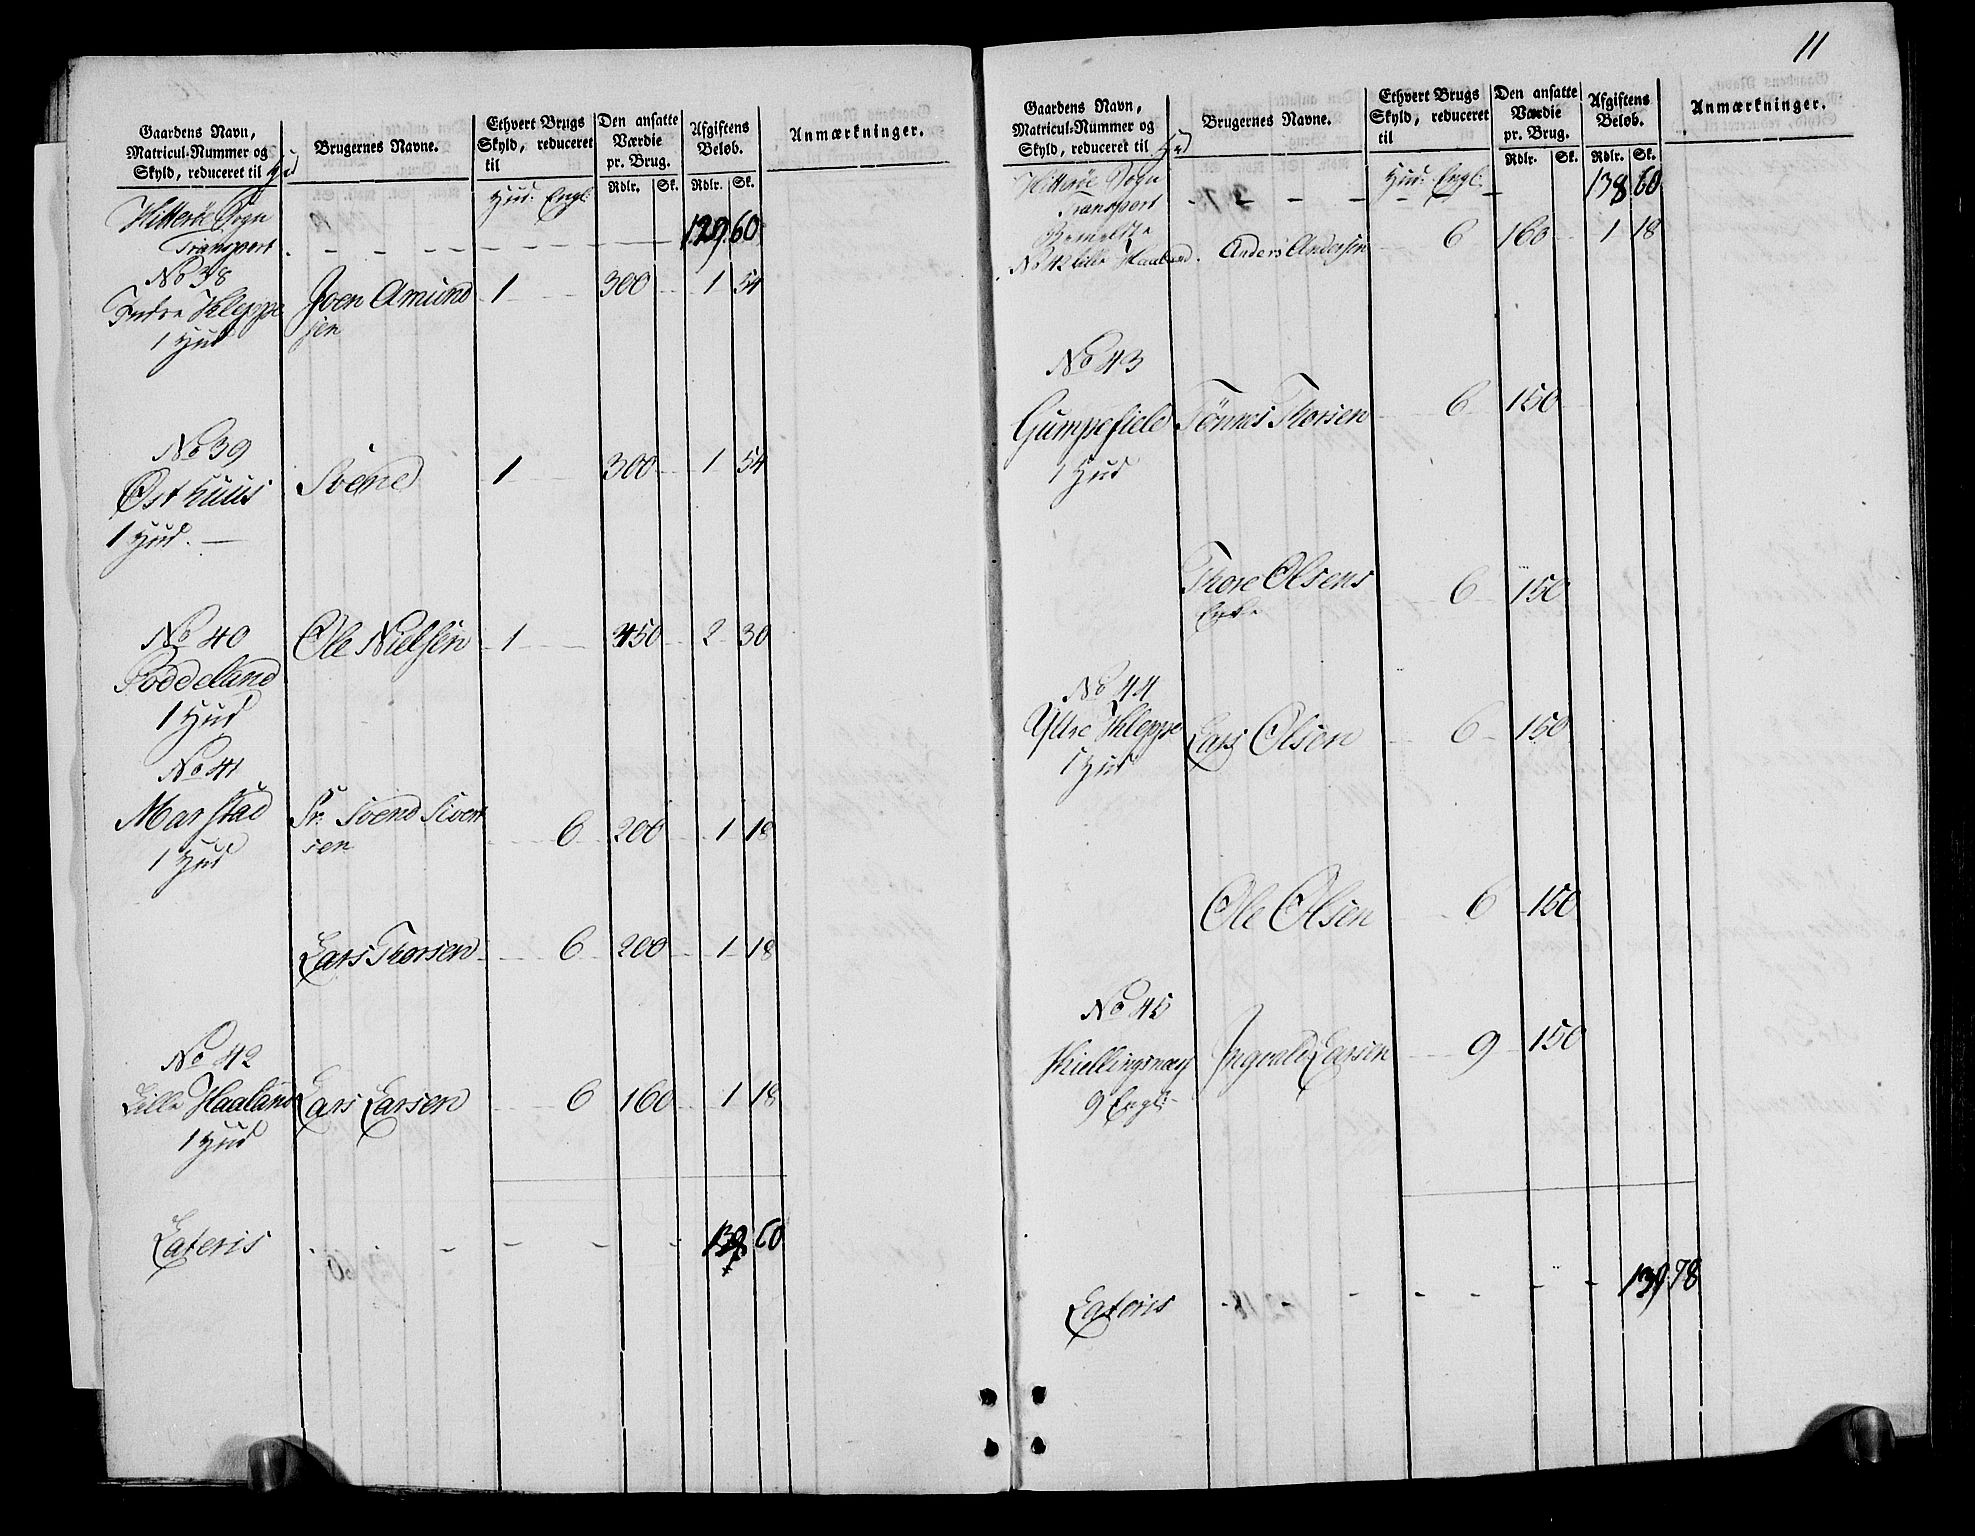 Gaardens Navn,
Matricul-Nummer og
Skyld, reduceret til Hud
Brugernes Navne.
Ethvert Brugs
Skyld, reduceret
til
Hud. Engl:
Den ansatte
Værdie
pr. Brug.
Rdlr. Sk.
Afgiftens
Beløb.
Rdlr. Sk.
Anmærkninger.
Hitterøe Sogn
Transport - - - - - 129. 60.
No 38
Indre Kleppe Joen Amund 1 300 1 54
1 Hud sen
No 39
Østhuus Svend 1 300 1 54
1 Hud.
No 40 Ole Nielsen 1 450 2 30
Poddeland
1 Hud
No 41
Marstad Sr. Svend Sivert 6 200 1 18
1 Hud sen
Lars Thorsen 6 200 1 18
No 42
Lille Haaland Lars Larsen 6 160 1 18
1 Hud
Lateris - - - - 60
11
Gaardens Navn,
Matricul-Nummer og
Skyld, reduceret til Hud
Brugernes Navne.
Ethvert Brugs
Skyld, reduceret
til
Hud. Engl:
Den ansatte
Værdie
pr. Brug.
Rdlr. Sk.
Afgiftens
Beløb.
Rdlr. Sk.
Anmærkninger.
Hitterøe Sogn
Transport - - - - - 138 60
No 42 Lille Haaland. Anders Andersen 6 160 1 18
No 43
Gumpefield Tønnes Thorsen 6 150
1 Hud
Thore Olsens 6 150
Enke
No 44
Yttre Kleppe Lars Olsen 6 150
1 Hud
Ole Olsen 6 150
No 45
Kiellingsnæs Ingvald Larsen 9 150
9 Engl:
Lateris - - - - - - - 139. 78